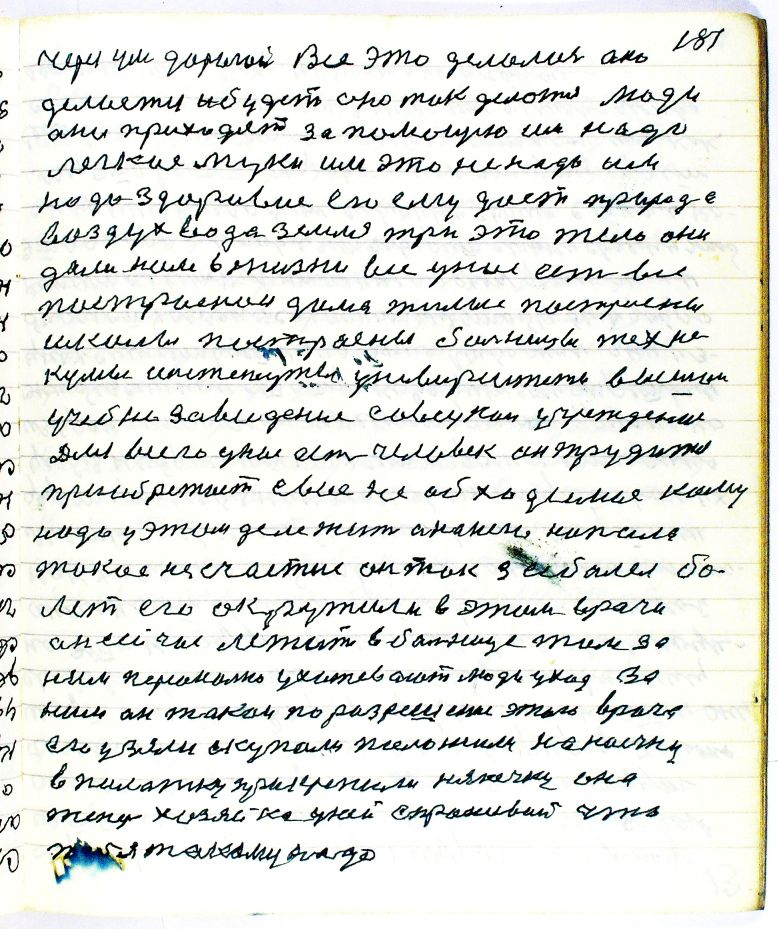 187
чери уш дорогой Все это делолся оно
делоется и будет оно так делотся люди
они приходят за помощую им надо
легкое муки им это не надо им
надо здоровие его ему дает природа
воздух вода земля три это тело они
дали нам в жизни все унас ест все
построеной дома жилые построены
школы построены больницы техне
кумы институты университеты высшои
учебно заведение совецкои учреждение
Для всего унас ест человек он трудится
приобретает свое не обходимое кому
надо у этом деле жит а нанего напала
токое несчастие он так заболел бо-
леет его окружили в этом врачи
он сейчас лежит в больнице там за
ним персонално ухажевают люди уход за
ним он такои по разрешению этого врача
его узяли скупали положили на коечку
в полатку прикрепили нянечку она
тепер хозяйка уней спрашивай что
тебя такому надо